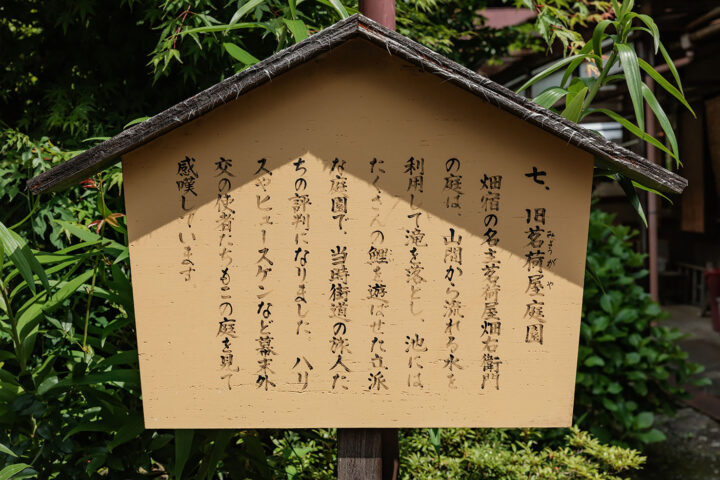 七、旧茗荷屋庭園
みょうがや
畑宿の名主茗荷屋畑右衛門
の庭は、山間から流れる水を
利用して滝を落とし、池には
たくさんの鯉を遊ばせた立派
な庭園で、当時街道の旅人た
ちの評判になりました。ハリ
スやヒュースケンなど幕末外
交の使者たちもこの庭を見て
感嘆しています